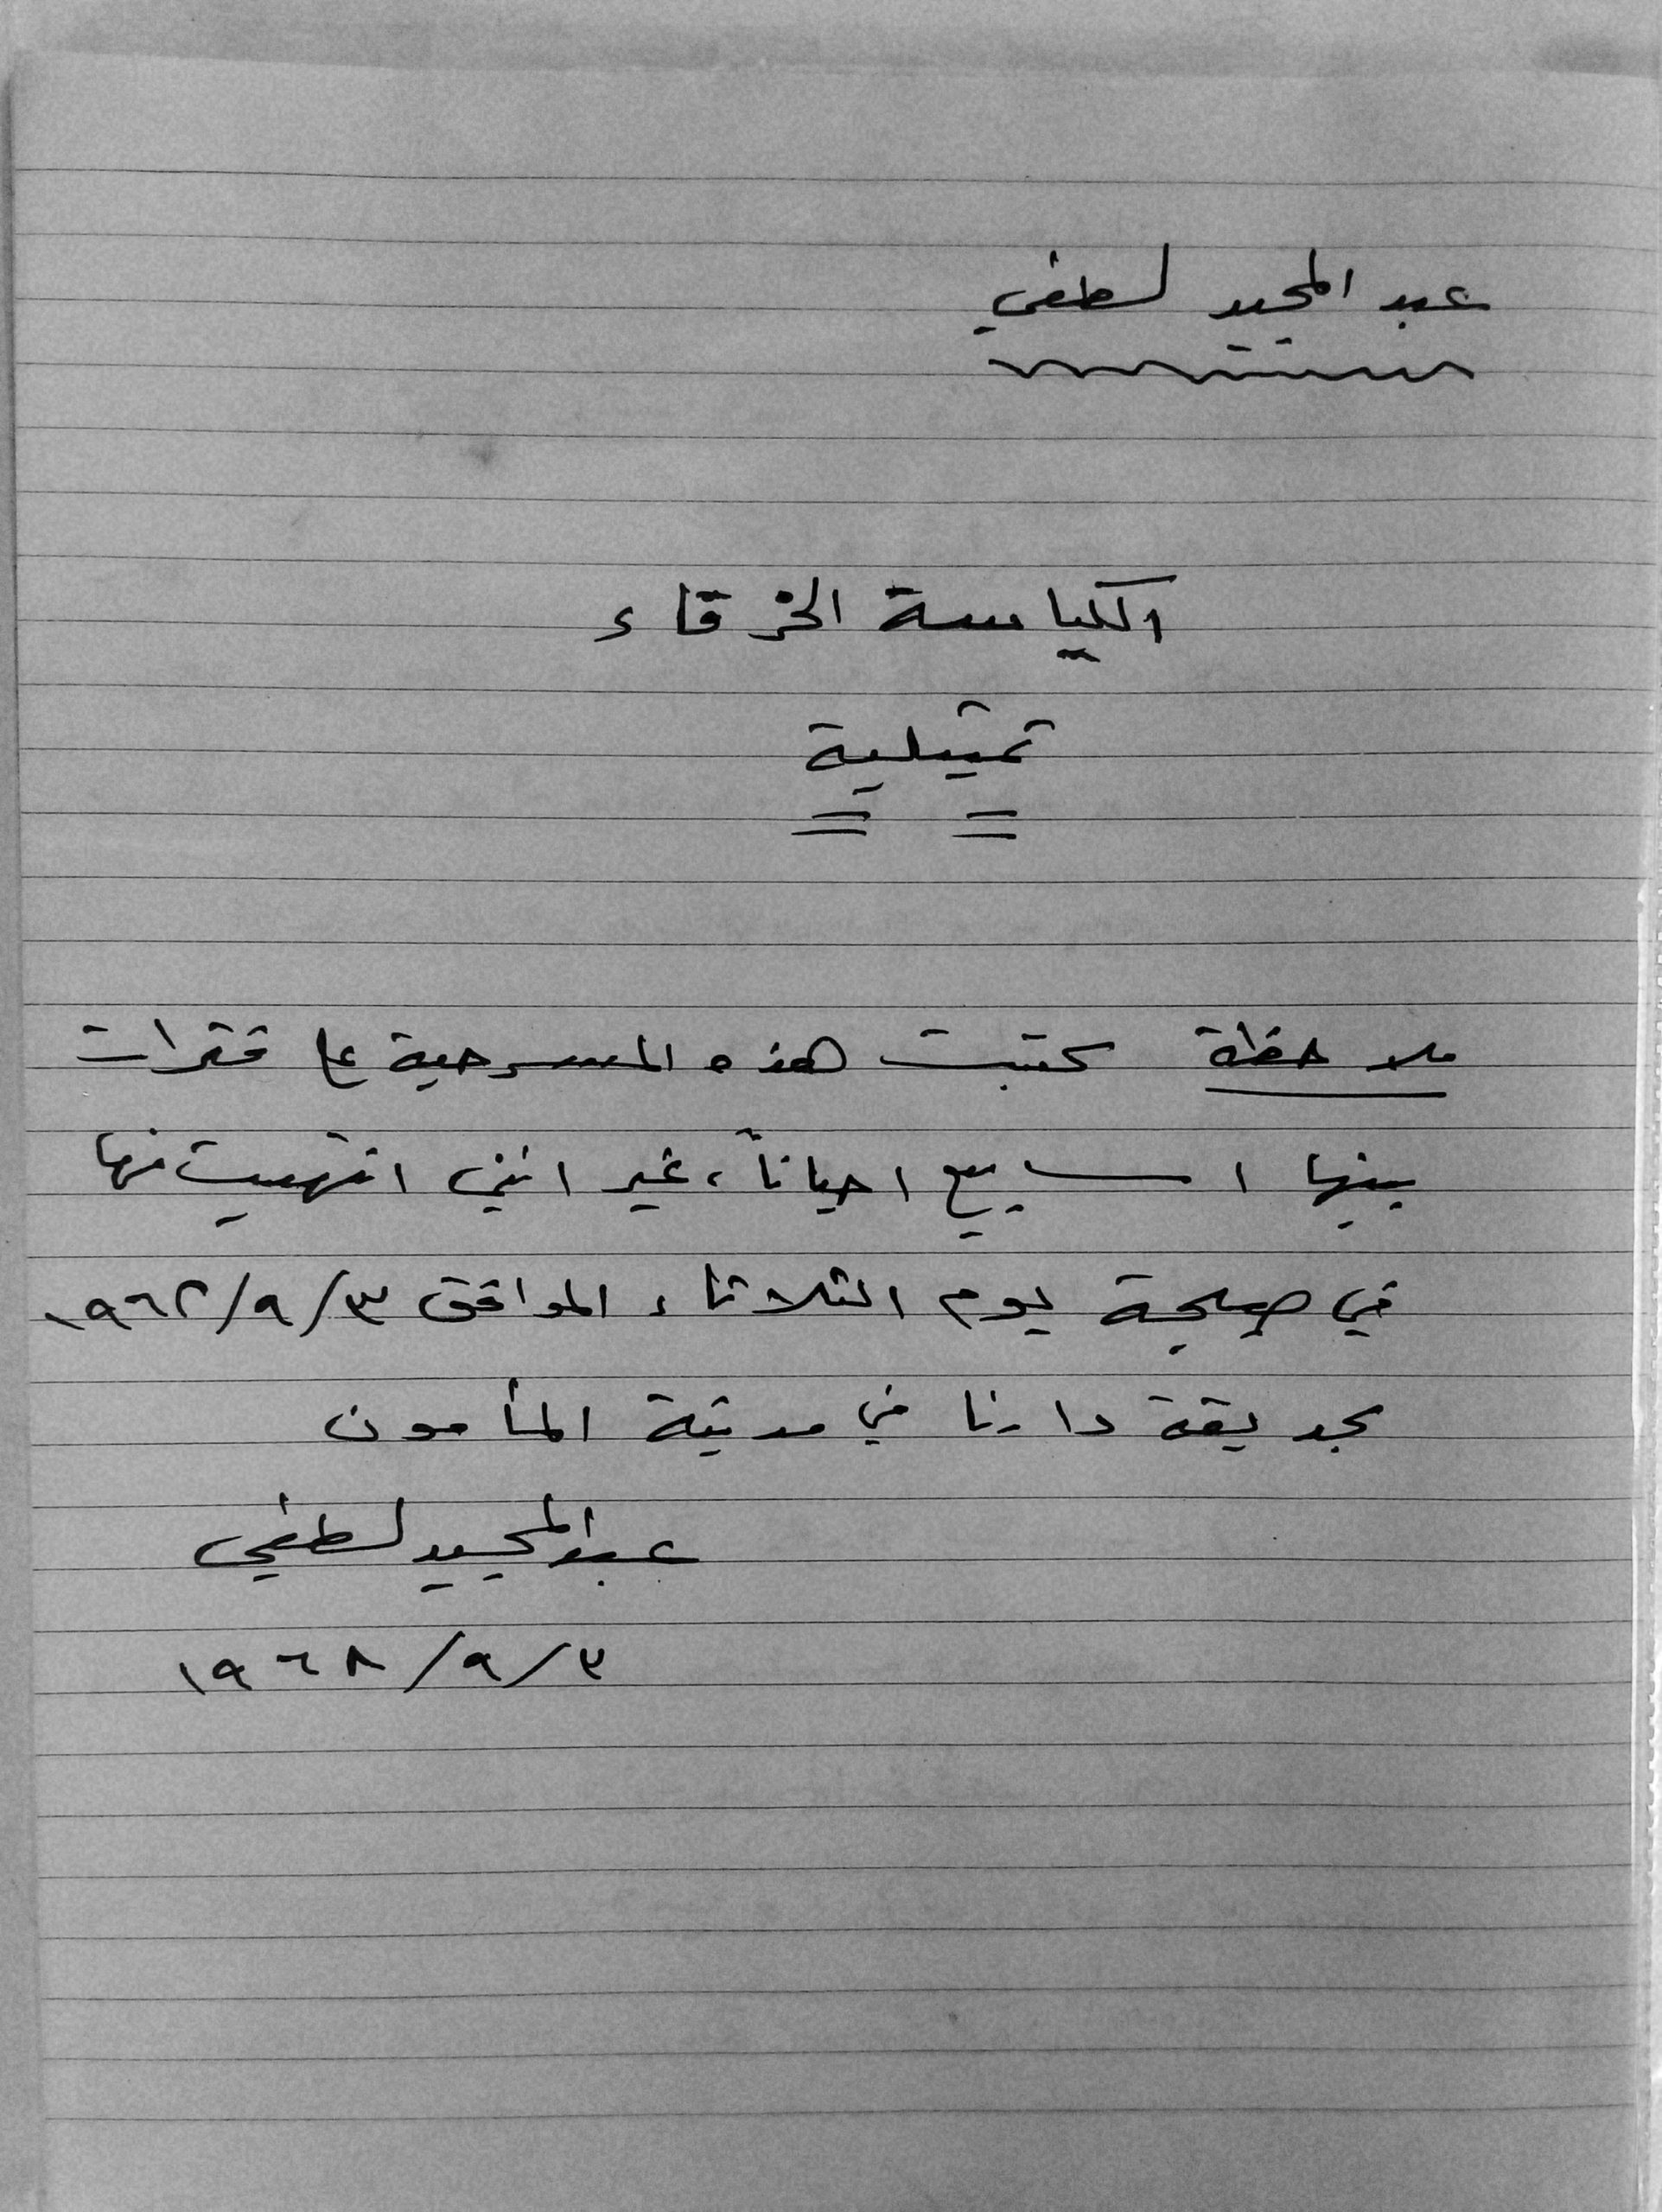 عبد المجيد لطفي
الكياسة الخرقاء
تمثيلية
ملاحظة كتبت هذه المسرحية على فترات
بينها اسابيع احياناً، غير انني انتهيت منها
في صبيحة يوم الثلاثاء الموافق ٣/٩/١٩٦٨
بحديقة دارنا في مدينة المأمون
عبد المجيد لطفي
٣/٩/١٩٦٨